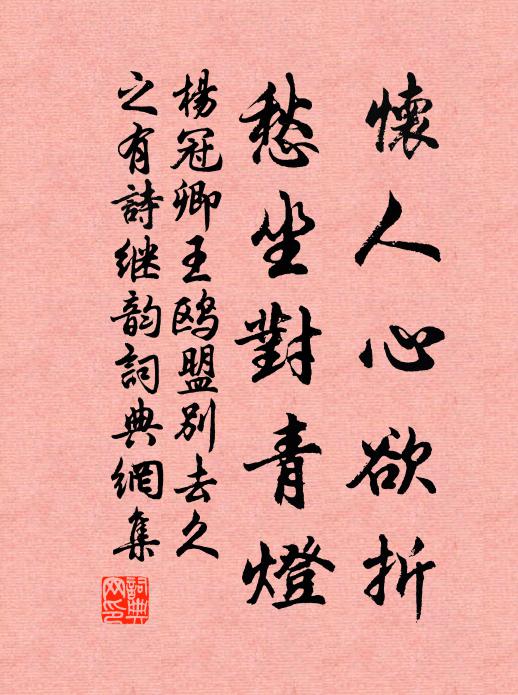 懷人心欲折
愁坐對青燈
楊冠卿王鷗盟別去久
之有詩继韵詞典網集
詞典網印